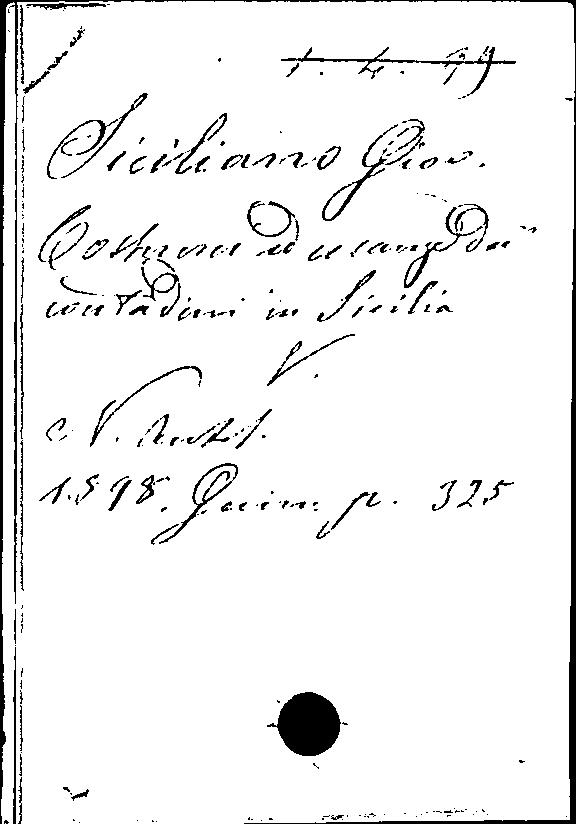 1. 4. 79
Siciliano Giov.
Costumi ed usanze dei
contadini in Sicilia
V.
N. Antol.
1898. Quin. p. 325